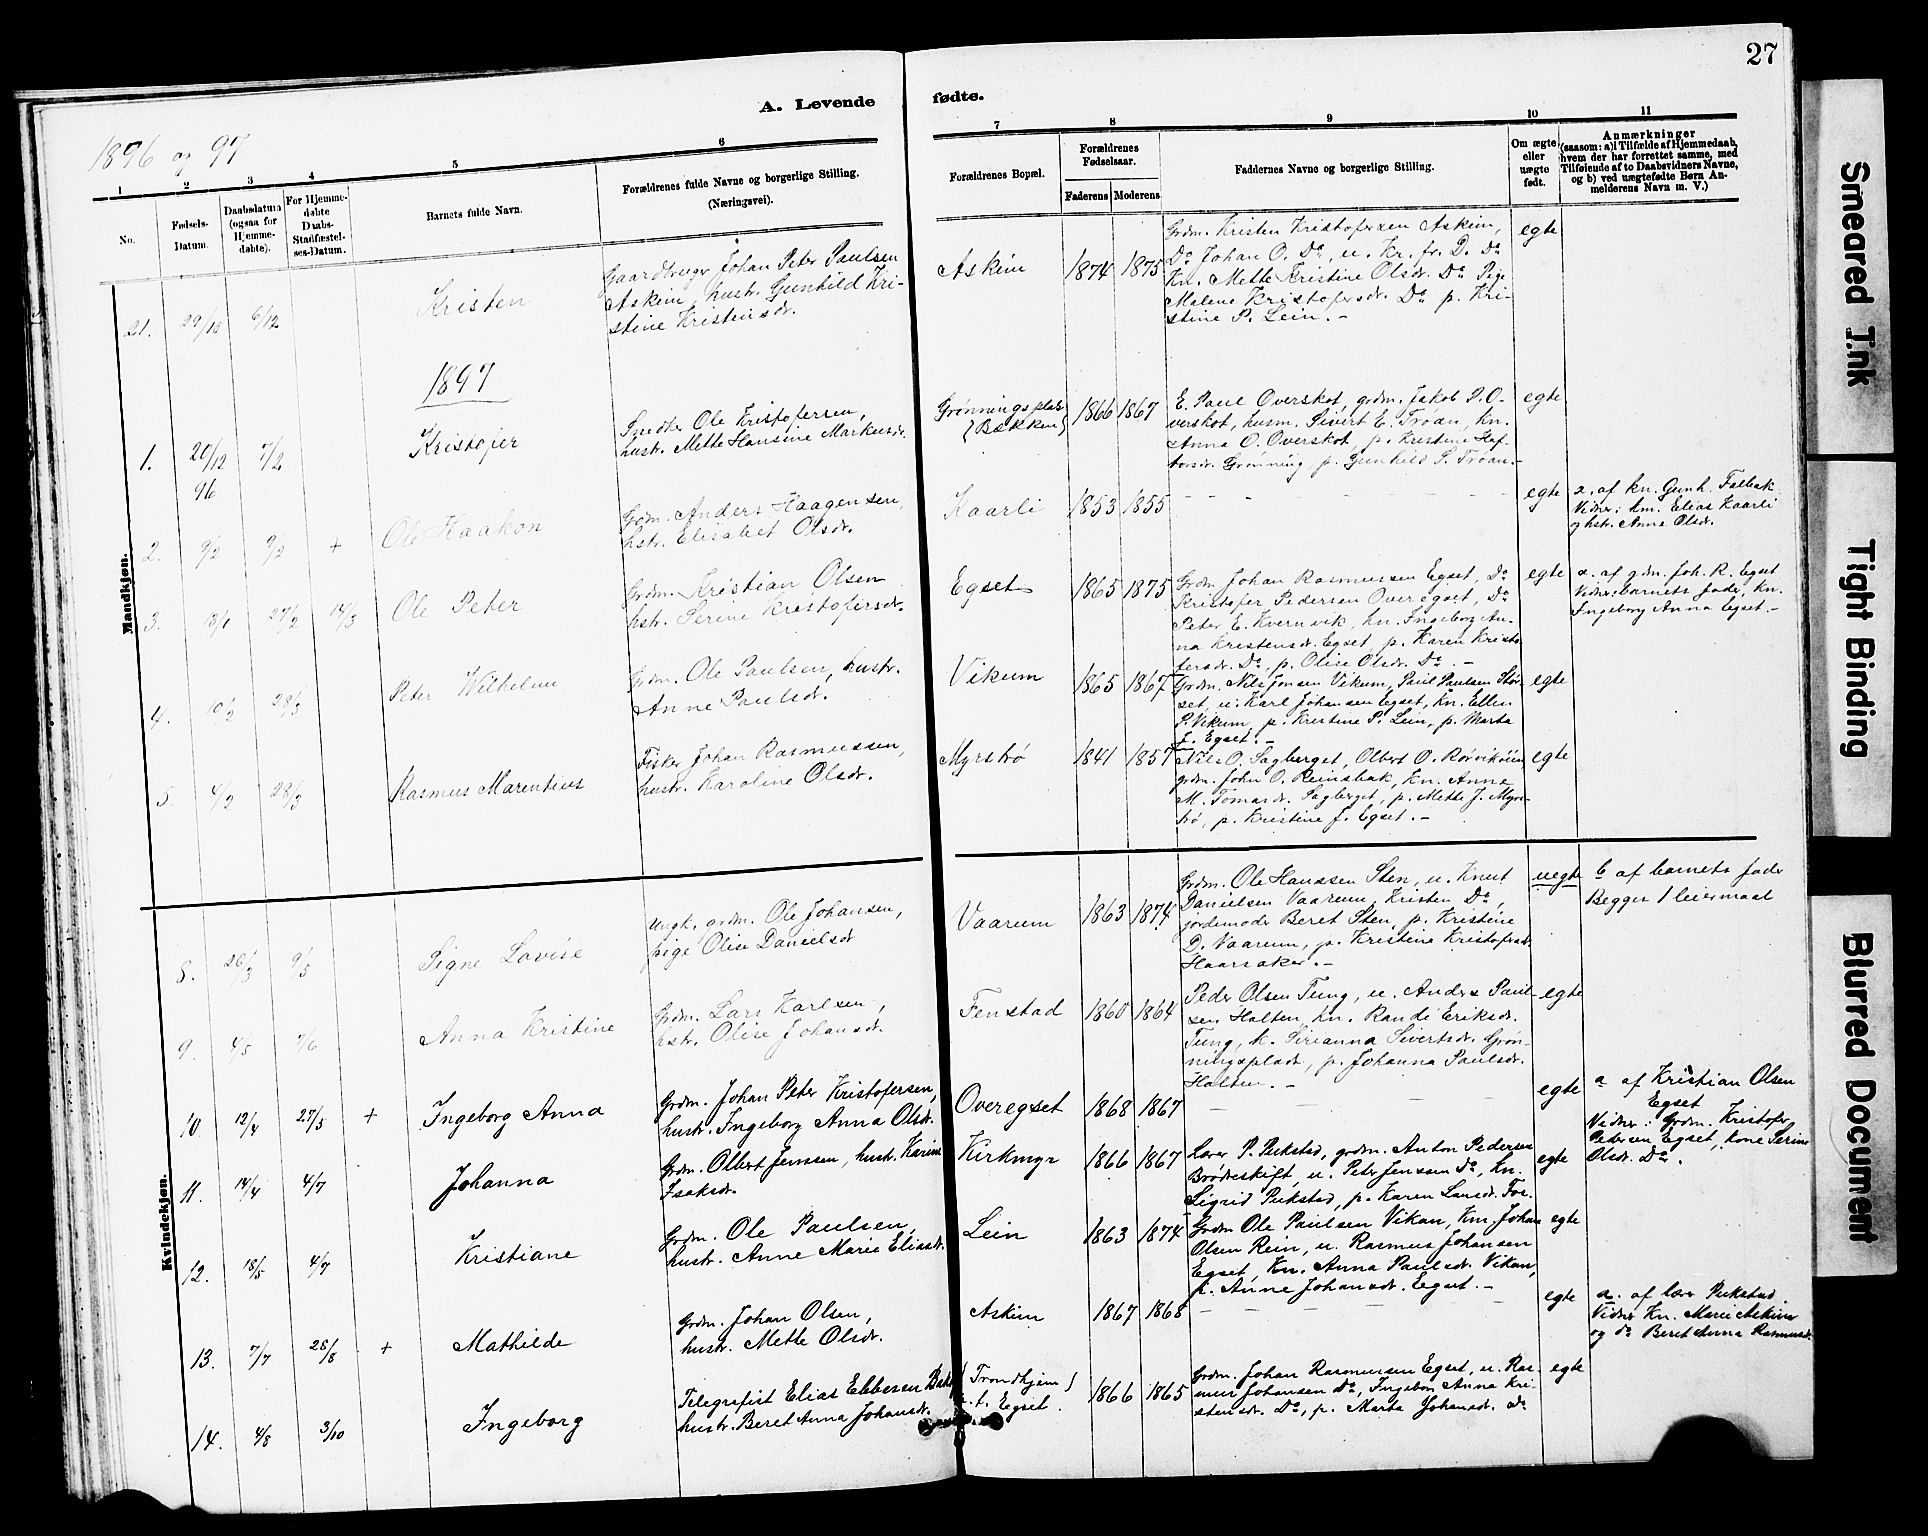 27
A. Levende fødte.
1896 og 97
1 2 3 4 5 6 7 8 9 10 11
No.
Fødsels-
Datum.
Daabsdatum
(ogsaa for
Hjemme-
døbte).
For Hjemme-
døbte
Daabs-
Stadfæstel-
ses-Datum.
Barnets fulde Navn.
Forældrenes fulde Navne og borgerlige Stilling.
(Næringsvei).
Forældrenes Bopæl.
Forældrenes
Fødselsaar.
Faderens Moderens
Faddernes Navne og borgerlige Stilling.
Om ægte
eller
uægte
født.
Anmærkninger
(saasom: a) i Tilfælde af Hjemmedaab,
hvem der har forrettet samme, med
Tilføiende af to Daabsvidners Navne,
og b) ved uægtefødte Børn An-
melderens Navn m. V.)
Mandkjøn.
21. 29/10 6/12 Kristen
Gaardbruger Johan Peter Paulsen
Askim, hustr. Gunhild Kri-
stine Kristensdr.
Askim 1874 1875
Grdm. Kristen Kristofersen Askim,
Do Johan O. Do, u. Kr. fr. D. Do
Kn. Mette Kristine Olsdr. Do Pige
Malene Kristofersdr. Do p. Kri-
stine P. Lein. -
egte
1897
1. 20/12 96 7/2 Kristofer
Smedter Ole Kristofersen,
hustr. Mette Hansine Markusdr.
Grønningsplads
(Bakken)
1866 1867
E. Paul Overskot, grdm. Jakob P. O-
verskot, husm. Sivert E. Trøan, kn.
Anna O. Overskot, p. Kristine Haf-
torsdr. Grønning p. Gunhild S. Trøan. -
egte
2. 9/2 9/2 + Ole Haakon
Grdm. Anders Haagensen,
hstr. Elisabet Olsdr.
Kaarli 1853 1855
egte
a. af kn. Gunh. Falbak
Vidner: hm. Elias Kaarli
og hstr. Anna Olsdr.
3. 13/1 27/2 14/3 Ole Peter
Grdm. Kristian Olsen
hstr. Serine Kristofersdr.
Egset 1865 1875
Grdm. Johan Rasmussen Egset, Do
Kristofer Pedersen Overegset, Do
Peter E. Kvernvik, kn. Ingeborg An-
na Kristensdr. Egset, p. Karen Kristo-
fersdr. Do, p. Olise Olsdr. Do. -
egte
a. af gdm. Joh. R. Egset
Vidner: barnets fader, kn.
Ingeborg Anna Egset. -
4. 10/2 28/3 Peter Wilhelm
Grdm. Ole Paulsen, hustr.
Anne Paulsdr.
Vikum 1865 1867
Grdm. Nils Jonsen Vikum, Paul Paulsen Stør-
set, u. Karl Johansen Egset, Kn. Ellen
P. Vikum, p. Kristine P. Lein, p. Marta
J. Egset. -
egte
5. 4/2 28/3 Rasmus Marentius
Fisker Johan Rasmussen,
hustr. Karoline Olsdr.
Myrstrø 1841 1857
Nils O. Sagberget, Olbert O. Rørvikøien
grdm. John O. Reinsbak, Kn. Anne
M. Tomasdr. Sagberget, p. Mette J. Myr-
strø, p. Kristine J. Egset. -
egte
Kvindekjøn.
8. 26/3 9/5 Signe Lovise
Ungk. grdm. Ole Johansen,
pige Olise Danielsdr
Vaarum 1863 1874
Grdm. Ole Hanssen Sten, u. Knut
Danielsen Vaarum, Kristen Do,
jordemoder Beret Sten, p. Kristine
D. Vaarum, p. Kristine Kristofersdr.
Haarsaker. -
uegte
b af barnets fader
Begges 1 leiermaal
9. 4/5 7/6 Anna Kristine
Grdm. Lars Karlsen,
hstr. Olise Johansdr.
Fenstad 1860 1864
Peder Olsen Tung, u. Anders Paul-
sen Halten, kn. Randi Eriksdr.
Tung, k. Sirianna Sivertsdr. Grøn-
ningsplads, p. Johanna Paulsdr.
Halten. -
egte
10. 12/4 27/5 + Ingeborg Anna
Grdm. Johan Peter Kristofersen,
hustr. Ingeborg Anna Olsdr.
Overegset 1868 1867
egte
a af Kristian Olsen
Egset
Vidner: Grdm. Kristofer
Pedersen Egset, kone Serine
Olsdr. Do.
11. 14/4 4/7 Johanna
Grdm. Olbert Jenssen, hust. Karine
Isaksdr.
Kirkmyr 1866 1867
Lærer P. Pukstad, grdm. Anton Pedersen
Brødreskift, u. Peter Jenssen Do, Kn.
Sigrid Pukstad, p. Karen Larsdr. Fos.
egte
12. 18/5 4/7 Kristiane
Grdm. Ole Paulsen,
hustr. Anne Marie Eliasdr.
Lein 1863 1874
Grdm Ole Paulsen Vikan, Km. Johan
Olsen Rein, u. Rasmus Johansen
Egset, Kn. Anna Paulsdr. Vikan,
p. Anne Johansdr. Egset. -
egte
13. 7/7 28/8 + Mathilde
Grdm. Johan Olsen,
hustr. Mette Olsdr.
Askim 1867 1868
egte
a. af lærer Pukstad
Vidner Kn. Marie Askim
og do Beret Anna Rasmusdr.
14. 4/8 3/10 Ingeborg
Telegrafist Elias Ebbesen
hustr. Beret Anna Johansdr.
(Trondhjem)
p. t. Egset.
1866 1865
Grdm. Johan Rasmussen Egset, u. Ras-
mus Johansen Do, Ingebor Anna Kri-
stensdr. Do, p. Marta Johansdr. do
egte
Smeared Ink
Tight Binding
Blurred Document